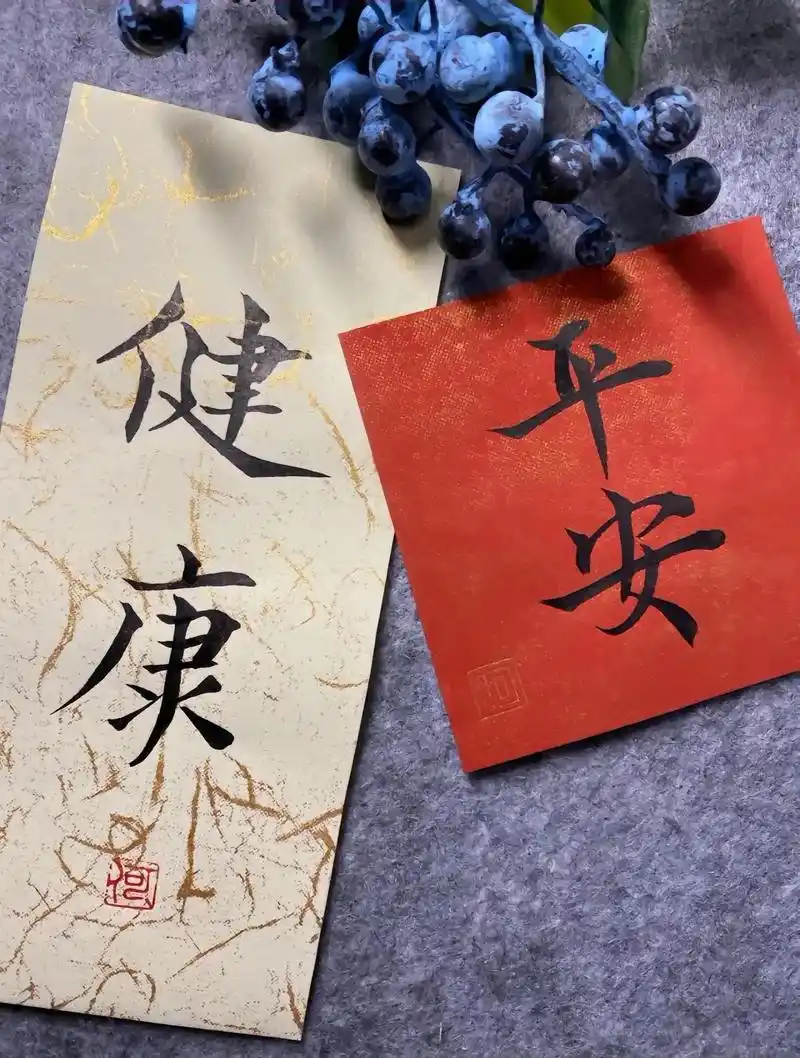 健康
何
平安
何